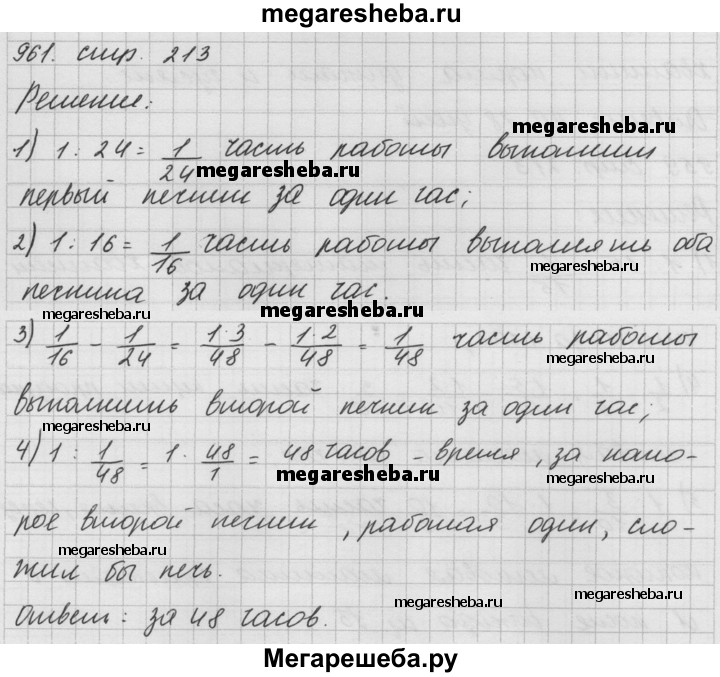 megaresheba.ru
961. стр. 213
Решение:
1) 1 : 24 = 1/24 часть работы выполнит
megaresheba.ru
megaresheba.ru
первый печник за один час;
2) 1 : 16 = 1/16 часть работы выполнять оба
megaresheba.ru
печника за один час.
megaresheba.ru
megaresheba.ru
3) 1/16 - 1/24 = 1·3/48 - 1·2/48 = 1/48 часть работы
megaresheba.ru
выполнить второй печник за один час;
4) 1 : 1/48 = 1 · 48/1 = 48 часов - время, за кото-
megaresheba.ru
megaresheba.ru
рое второй печник, работая один, сло-
megaresheba.ru
жил бы печь.
megaresheba.ru
megaresheba.ru
Ответ: за 48 часов.
Мегарешеба.ру